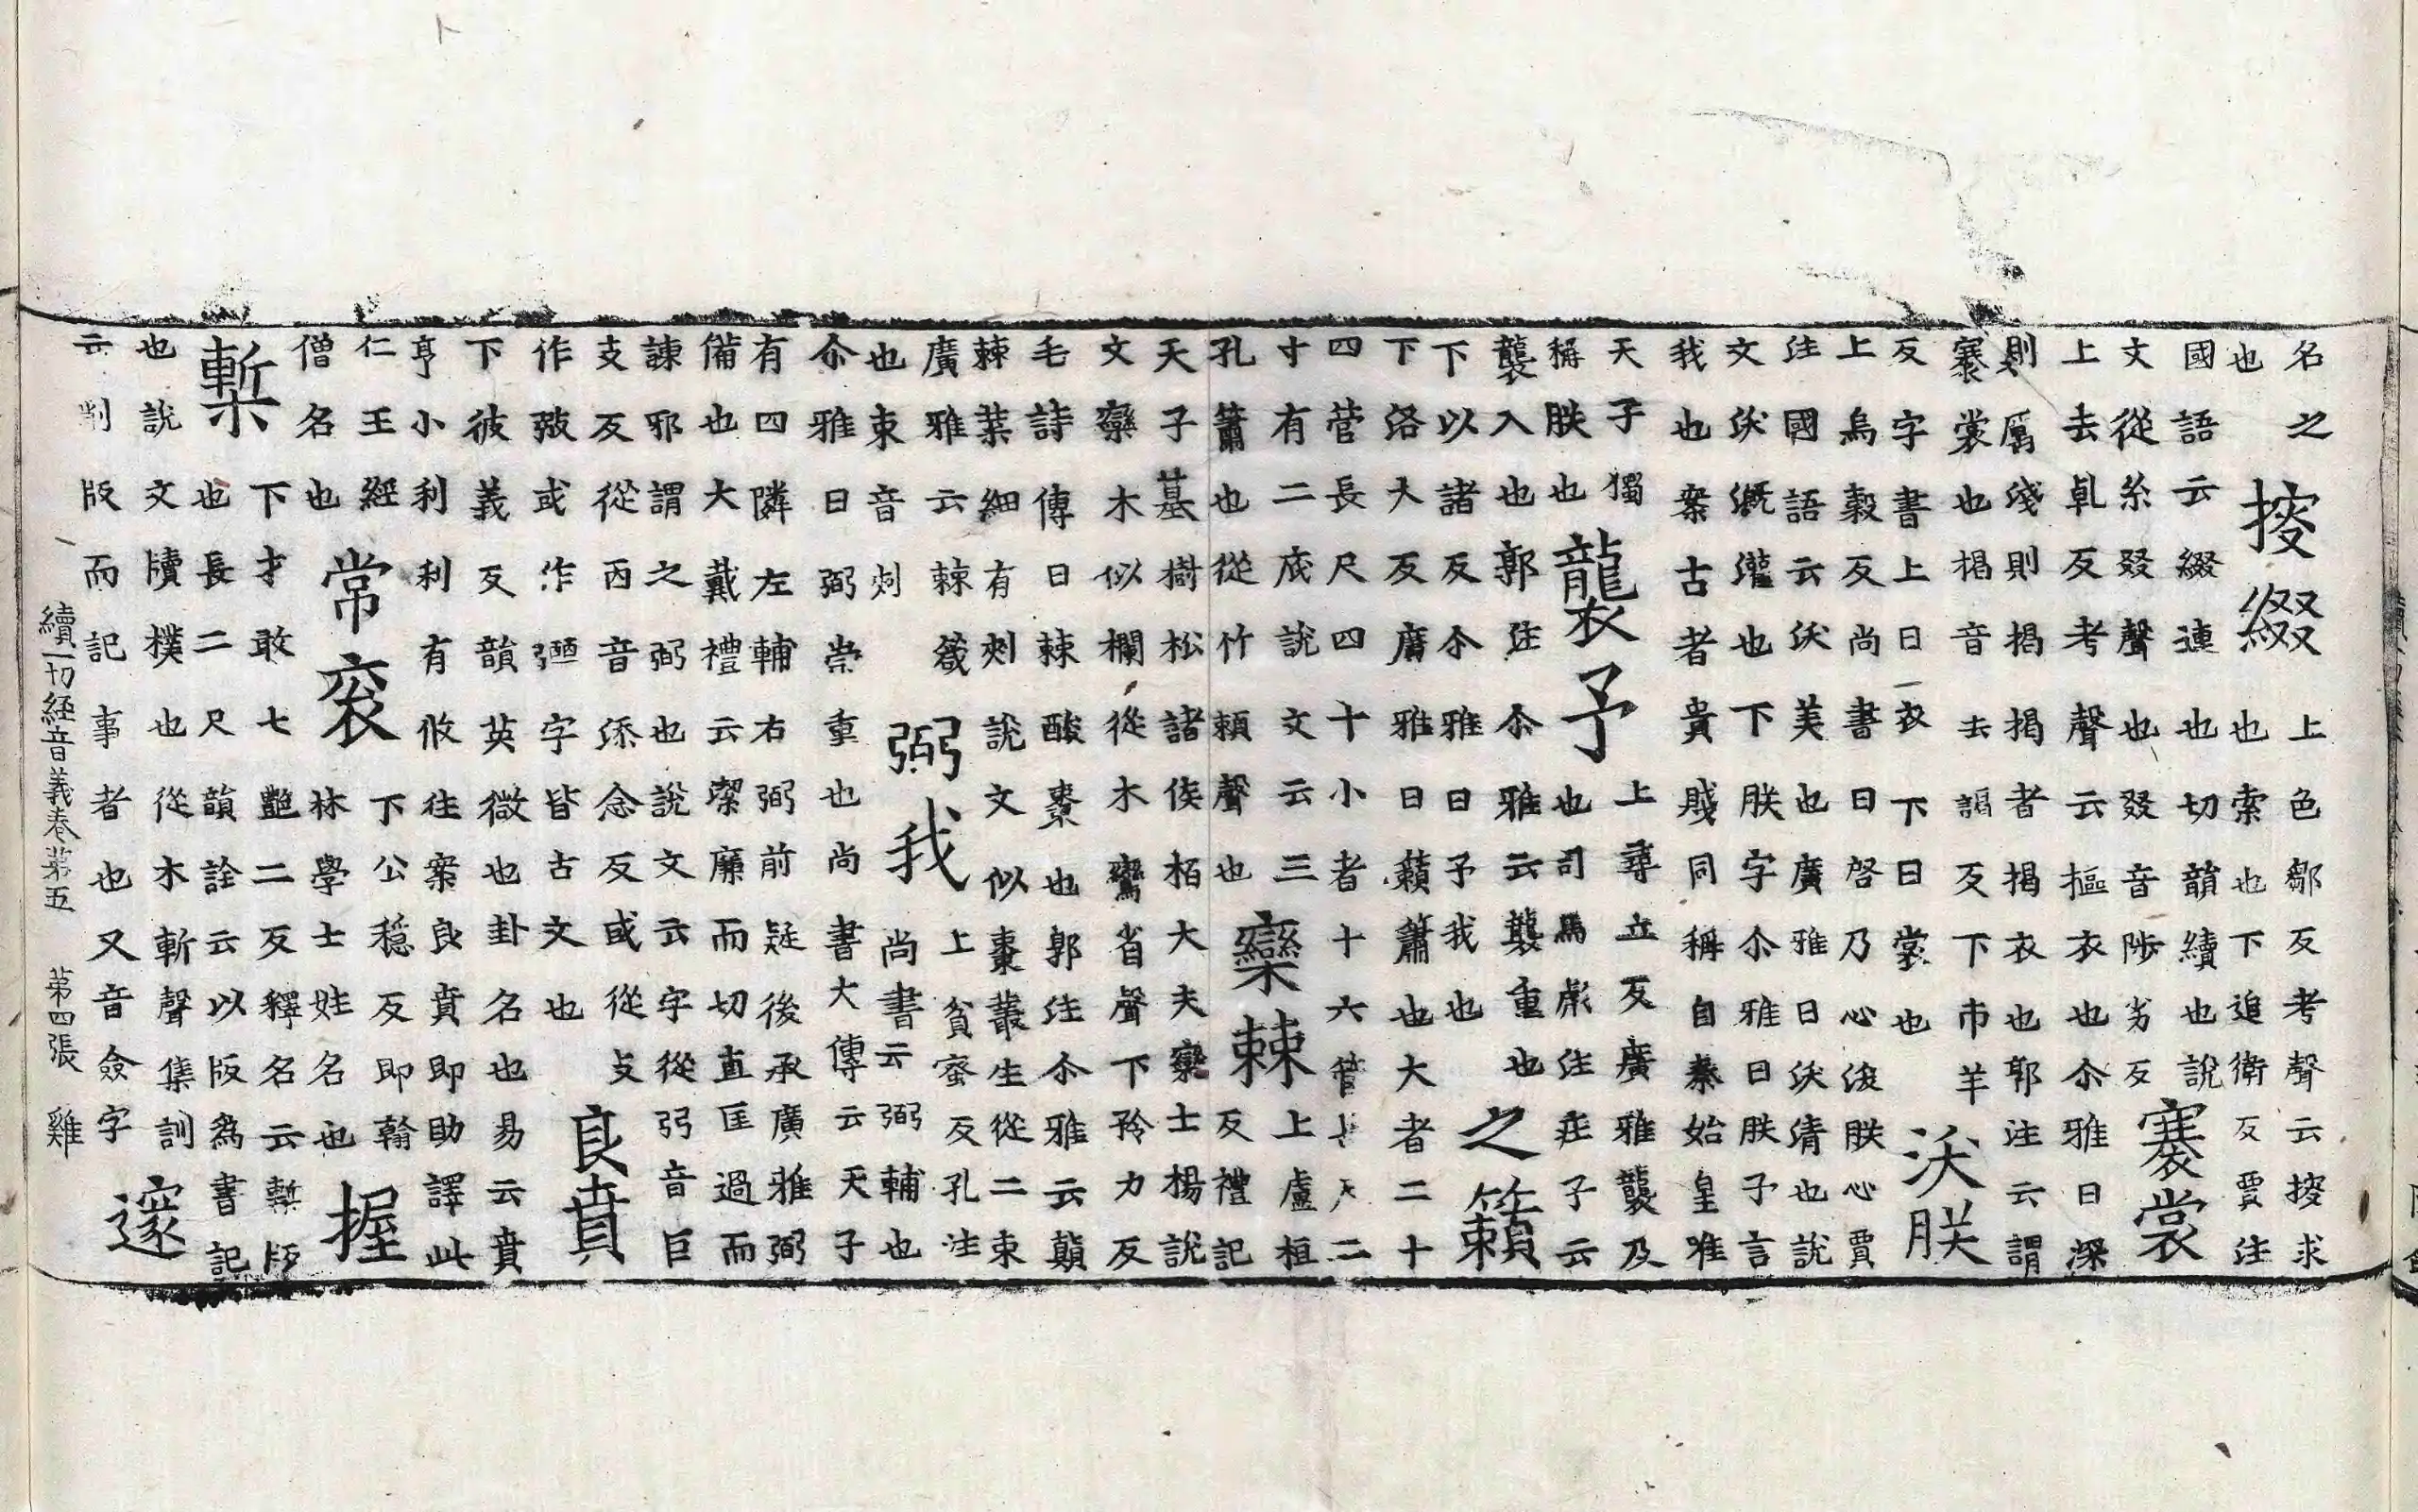 名之
也
搜綴
上色鄒反考聲云搜求
也索也下追衛反賈注
國語云綴連也切韻續也說
文從糸叕聲也叕音陟劣反
褰裳
上去乹反考聲云摳衣也尒雅曰深
則厲淺則揭揭者揭衣也郭注云謂
褰裳也揭音去謁反下市羊
反字書上曰衣下曰裳也
沃朕
上烏穀反尚書曰啓乃心浚朕心賈
注國語云沃美也廣雅曰沃清也說
文沃溉灌也下朕字尒雅曰朕予言
我也案古者貴賤同稱自秦始皇唯
天子獨
稱朕也
襲予
上尋立反廣雅襲及
也司馬彪注莊子云
襲入也郭注尒雅云襲重也
下以諸反尒雅曰予我也
之籟
下洛大反廣雅曰籟簫也大者二十
四管長尺四十小者十六管 二
寸有二底說文云三
孔簫也從竹賴聲也
欒棘
上盧桓
反禮記
天子墓樹松諸侯栢大夫欒士楊說
文欒木似欄從木鸞省聲下矜力反
毛詩傳曰棘酸棗也郭注尒雅云顛
棘葉細有刾說文似棗叢生從二朿
廣雅云棘箴
也朿音刾
弼我
上貧蜜反孔注
尚書云弼輔也
尒雅曰弼崇重也尚書大傳云天子
有四隣左輔右弼前疑後承廣雅弼
備也大戴禮云潔廉而切直匡過而
諫邪謂之弼也說文云字從弜音巨
支反從㐁音添念反或從攴
作 或作 字皆古文也
良賁
下彼義反韻英微也卦名也易云賁
亨小利利有攸往案良賁即助譯此
仁王經
僧名也
常袞
下公穩反即翰
林學士姓名也
握
槧
下才敢七豔二反釋名云槧版
也長二尺韻詮云以版為書記
也說文牘樸也從木斬聲集訓
云削版而記事者也又音僉字
邃
續一切經音義卷第五 第四張 雞